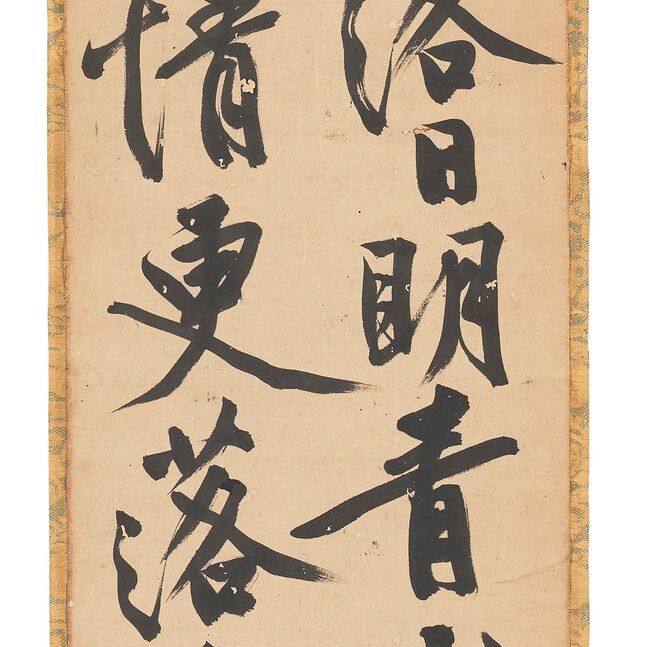 落日明青
情更落